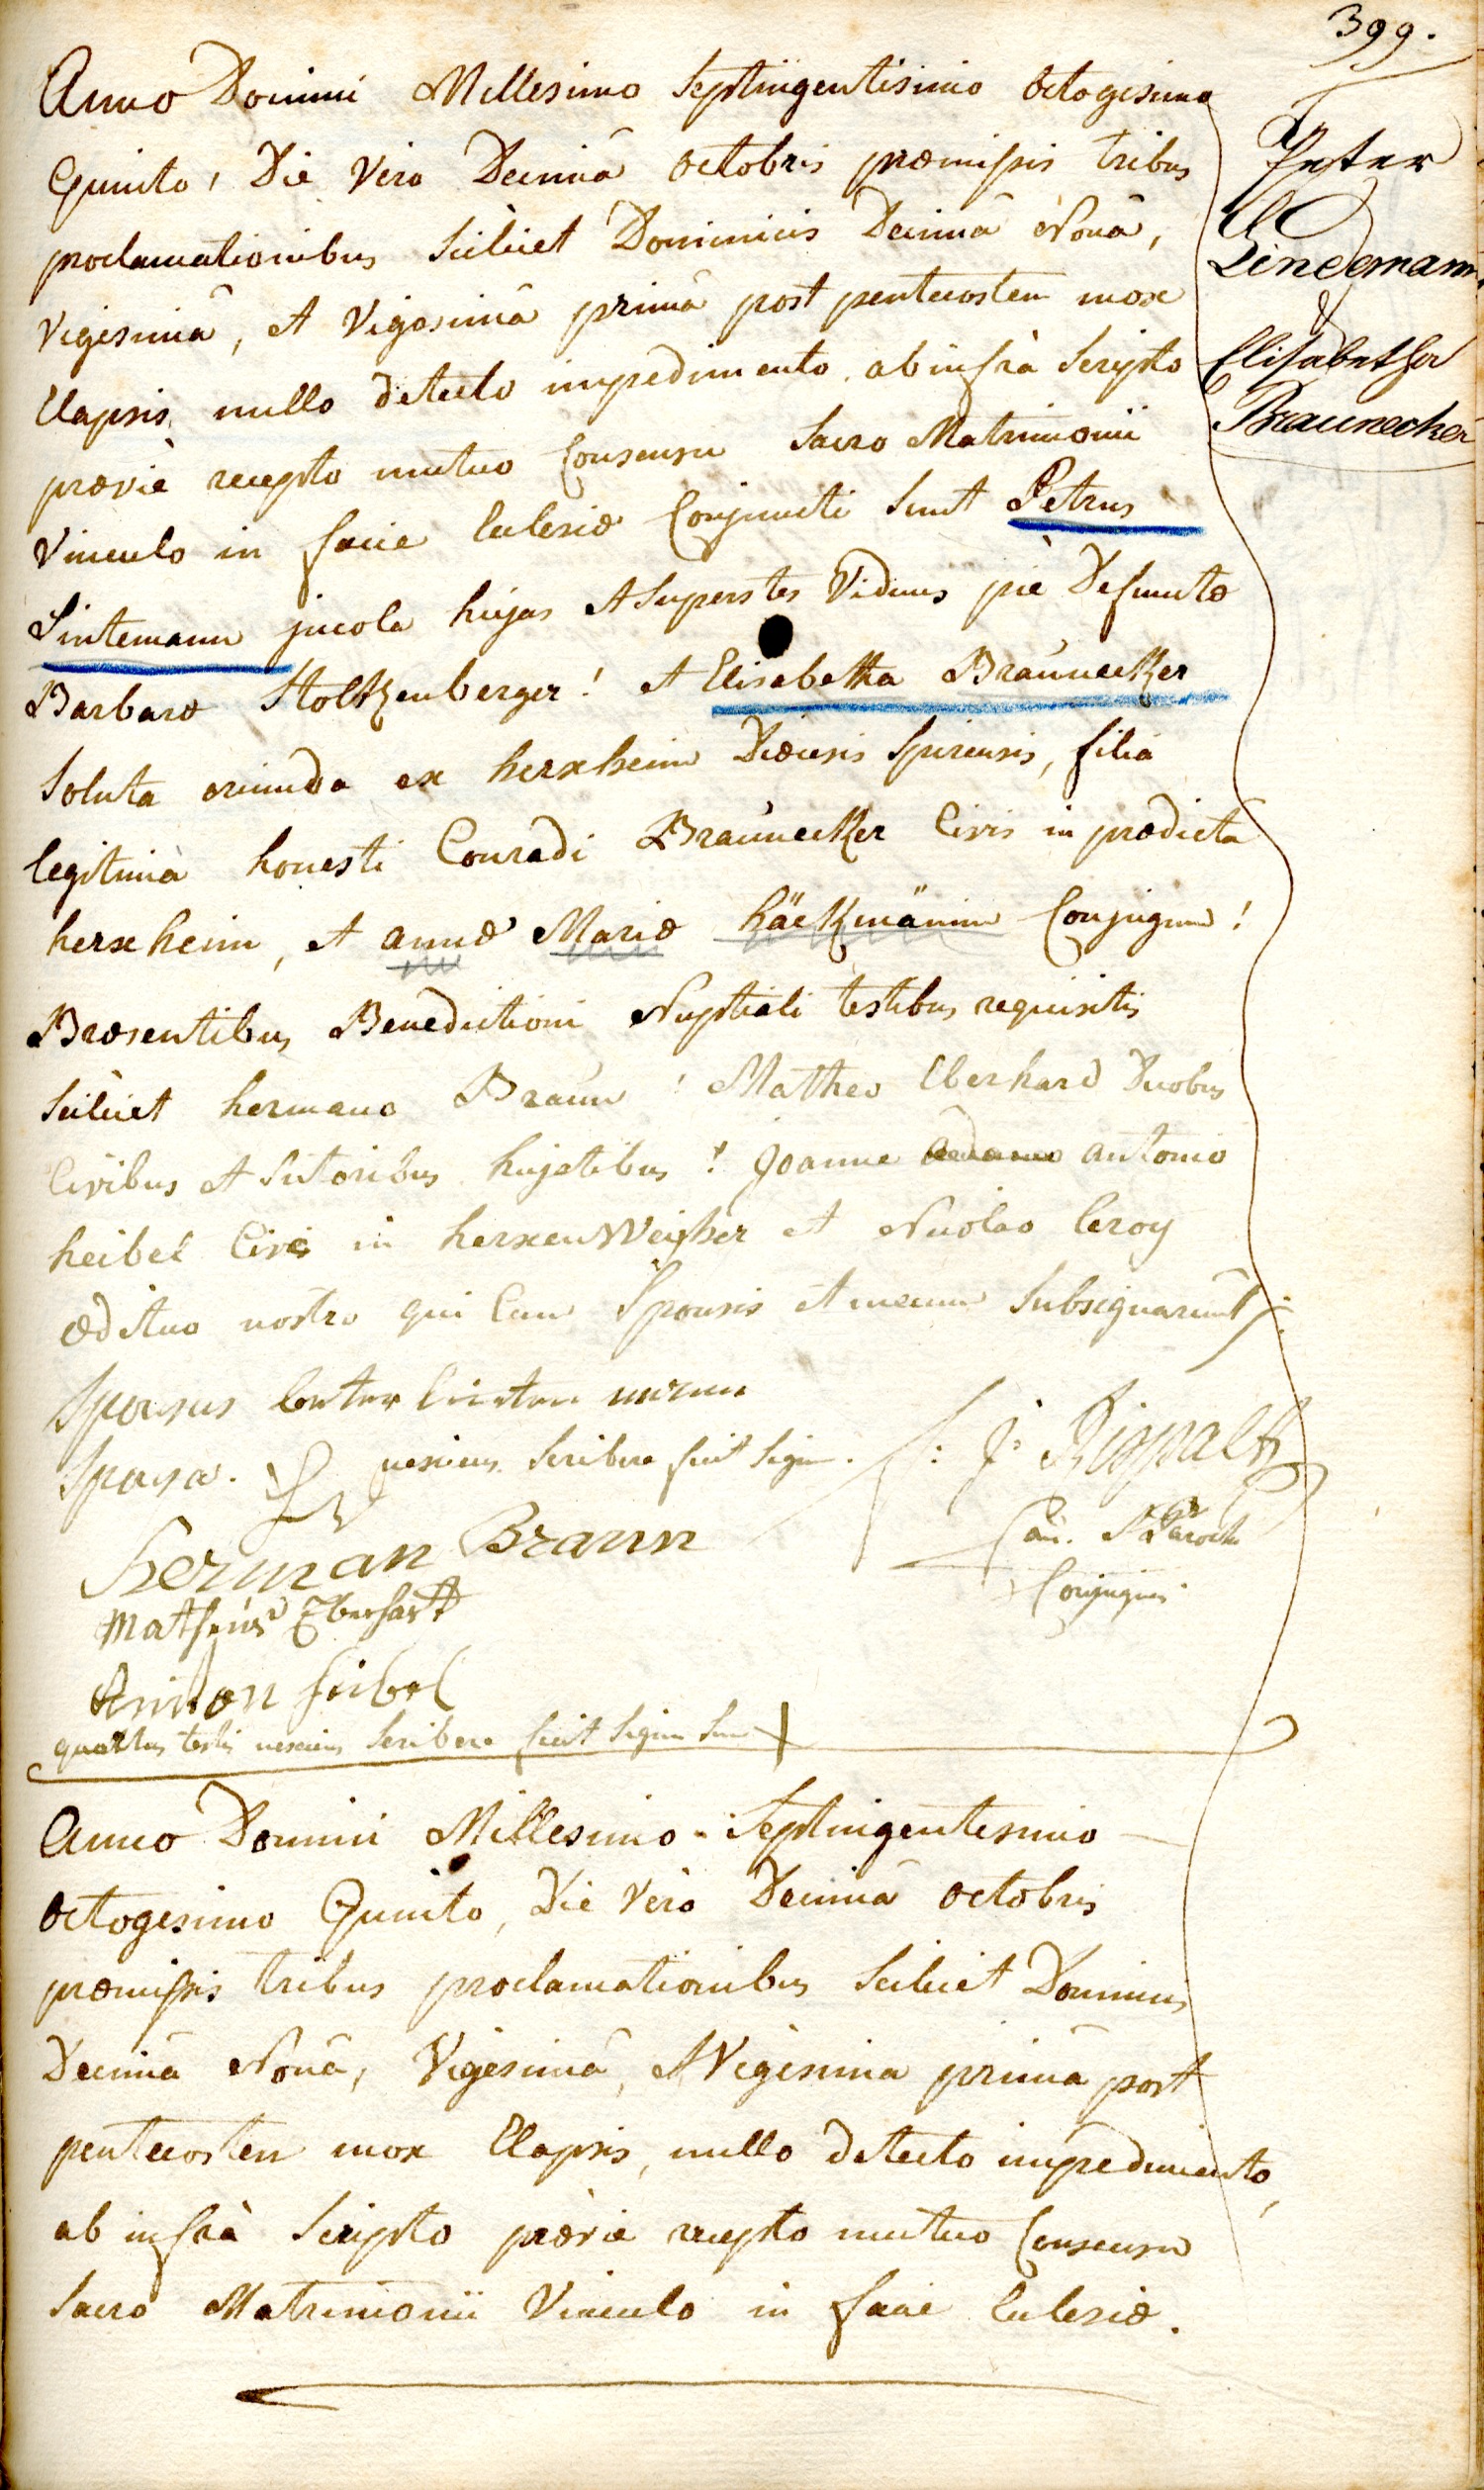 399.
Anno Domini Millesimo Septingentisimo Octogesimo
Quinto, Die Vero Decimâ Octobris præmissis tribus
proclamationibus Scilicet Dominicis Decimâ Nonâ,
Vigesimâ, et Vigesimâ primâ post pentecosten mox
Elapsis, nullo detecto impedimento, ab infrà Scripto
præviè recepto mutuo Consensu Sacro Matrimonii
Vinculo in facie Eclesiæ Conjuncti Sunt Petrus
Lintemann jncola hujas et Superstes Viduus piè Defunctæ
Barbaræ Stoltzenberger! et Elisabetha Braúnecker
Soluta oriunda ex herxheim Diœcesis Spirensis, filia
legitima honesti Conradi Braúnecker Civis in prædictâ
herxheim, et annæ Mariæ häckmännin Conjugum!
Præsentibus Benedictioni Nuptiali testibus requisitis
Scilicet hermano Braún! Matheo Eberhard Duobus
Civibus et Sutoribus hujatibus! Joanne antonio
heibel Cive in herxenWeijher et Nicolao leroy
ædituo nostro qui Cum Sponsis et mecum Subsignarunt
Peter
Lindemann
&
Elisabetha
Braunecker
Sponsus
Sponsa. nesciens Scribere fecit Sign.
Herman Braun
Matheus Eberhart
Anton heibel
quartus testis nesciens Scribere fecit Signum Suum +
Conjugum
Anno Domini Millesimo Septingentesimo
Octogesimo Quinto, Die Verò Decimâ Octobris
præmissis tribus proclamationibus Scilicet Dominicis
Decimâ Nonâ, Vigesimâ, et Vigesima primâ post
pentecosten mox Elapsis, nullo detecto impedimento,
ab infrà Scripto præviè recepto mutuo Consensu
Sacro Matrimonii Vinculo in facie Eclesiæ.